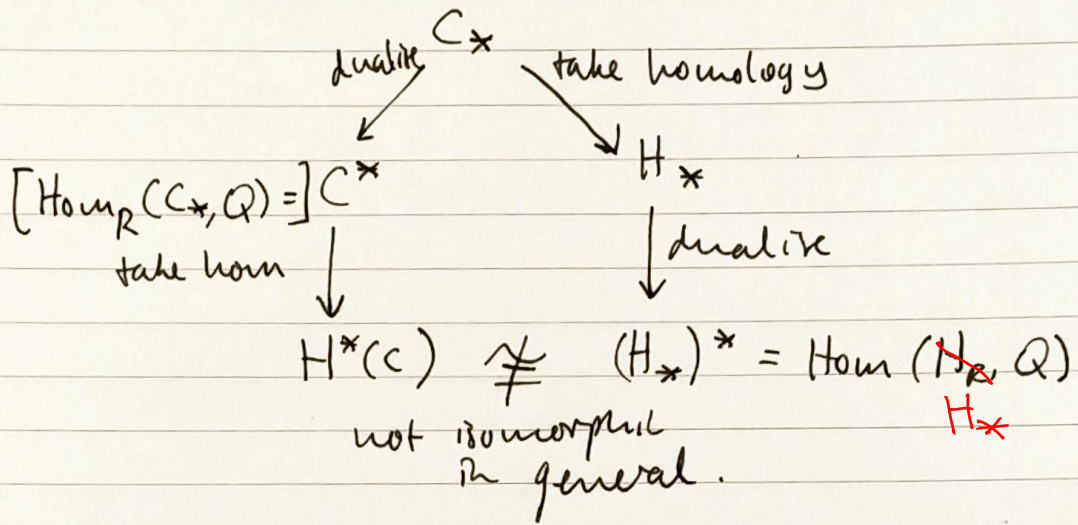 C_*
dualize take homology
[Hom_R(C_*, Q) =] C^* H_*
take hom dualize
H^*(C) ≇ (H_*)^* = Hom (H_R, Q)
H_*
not isomorphic
in general.